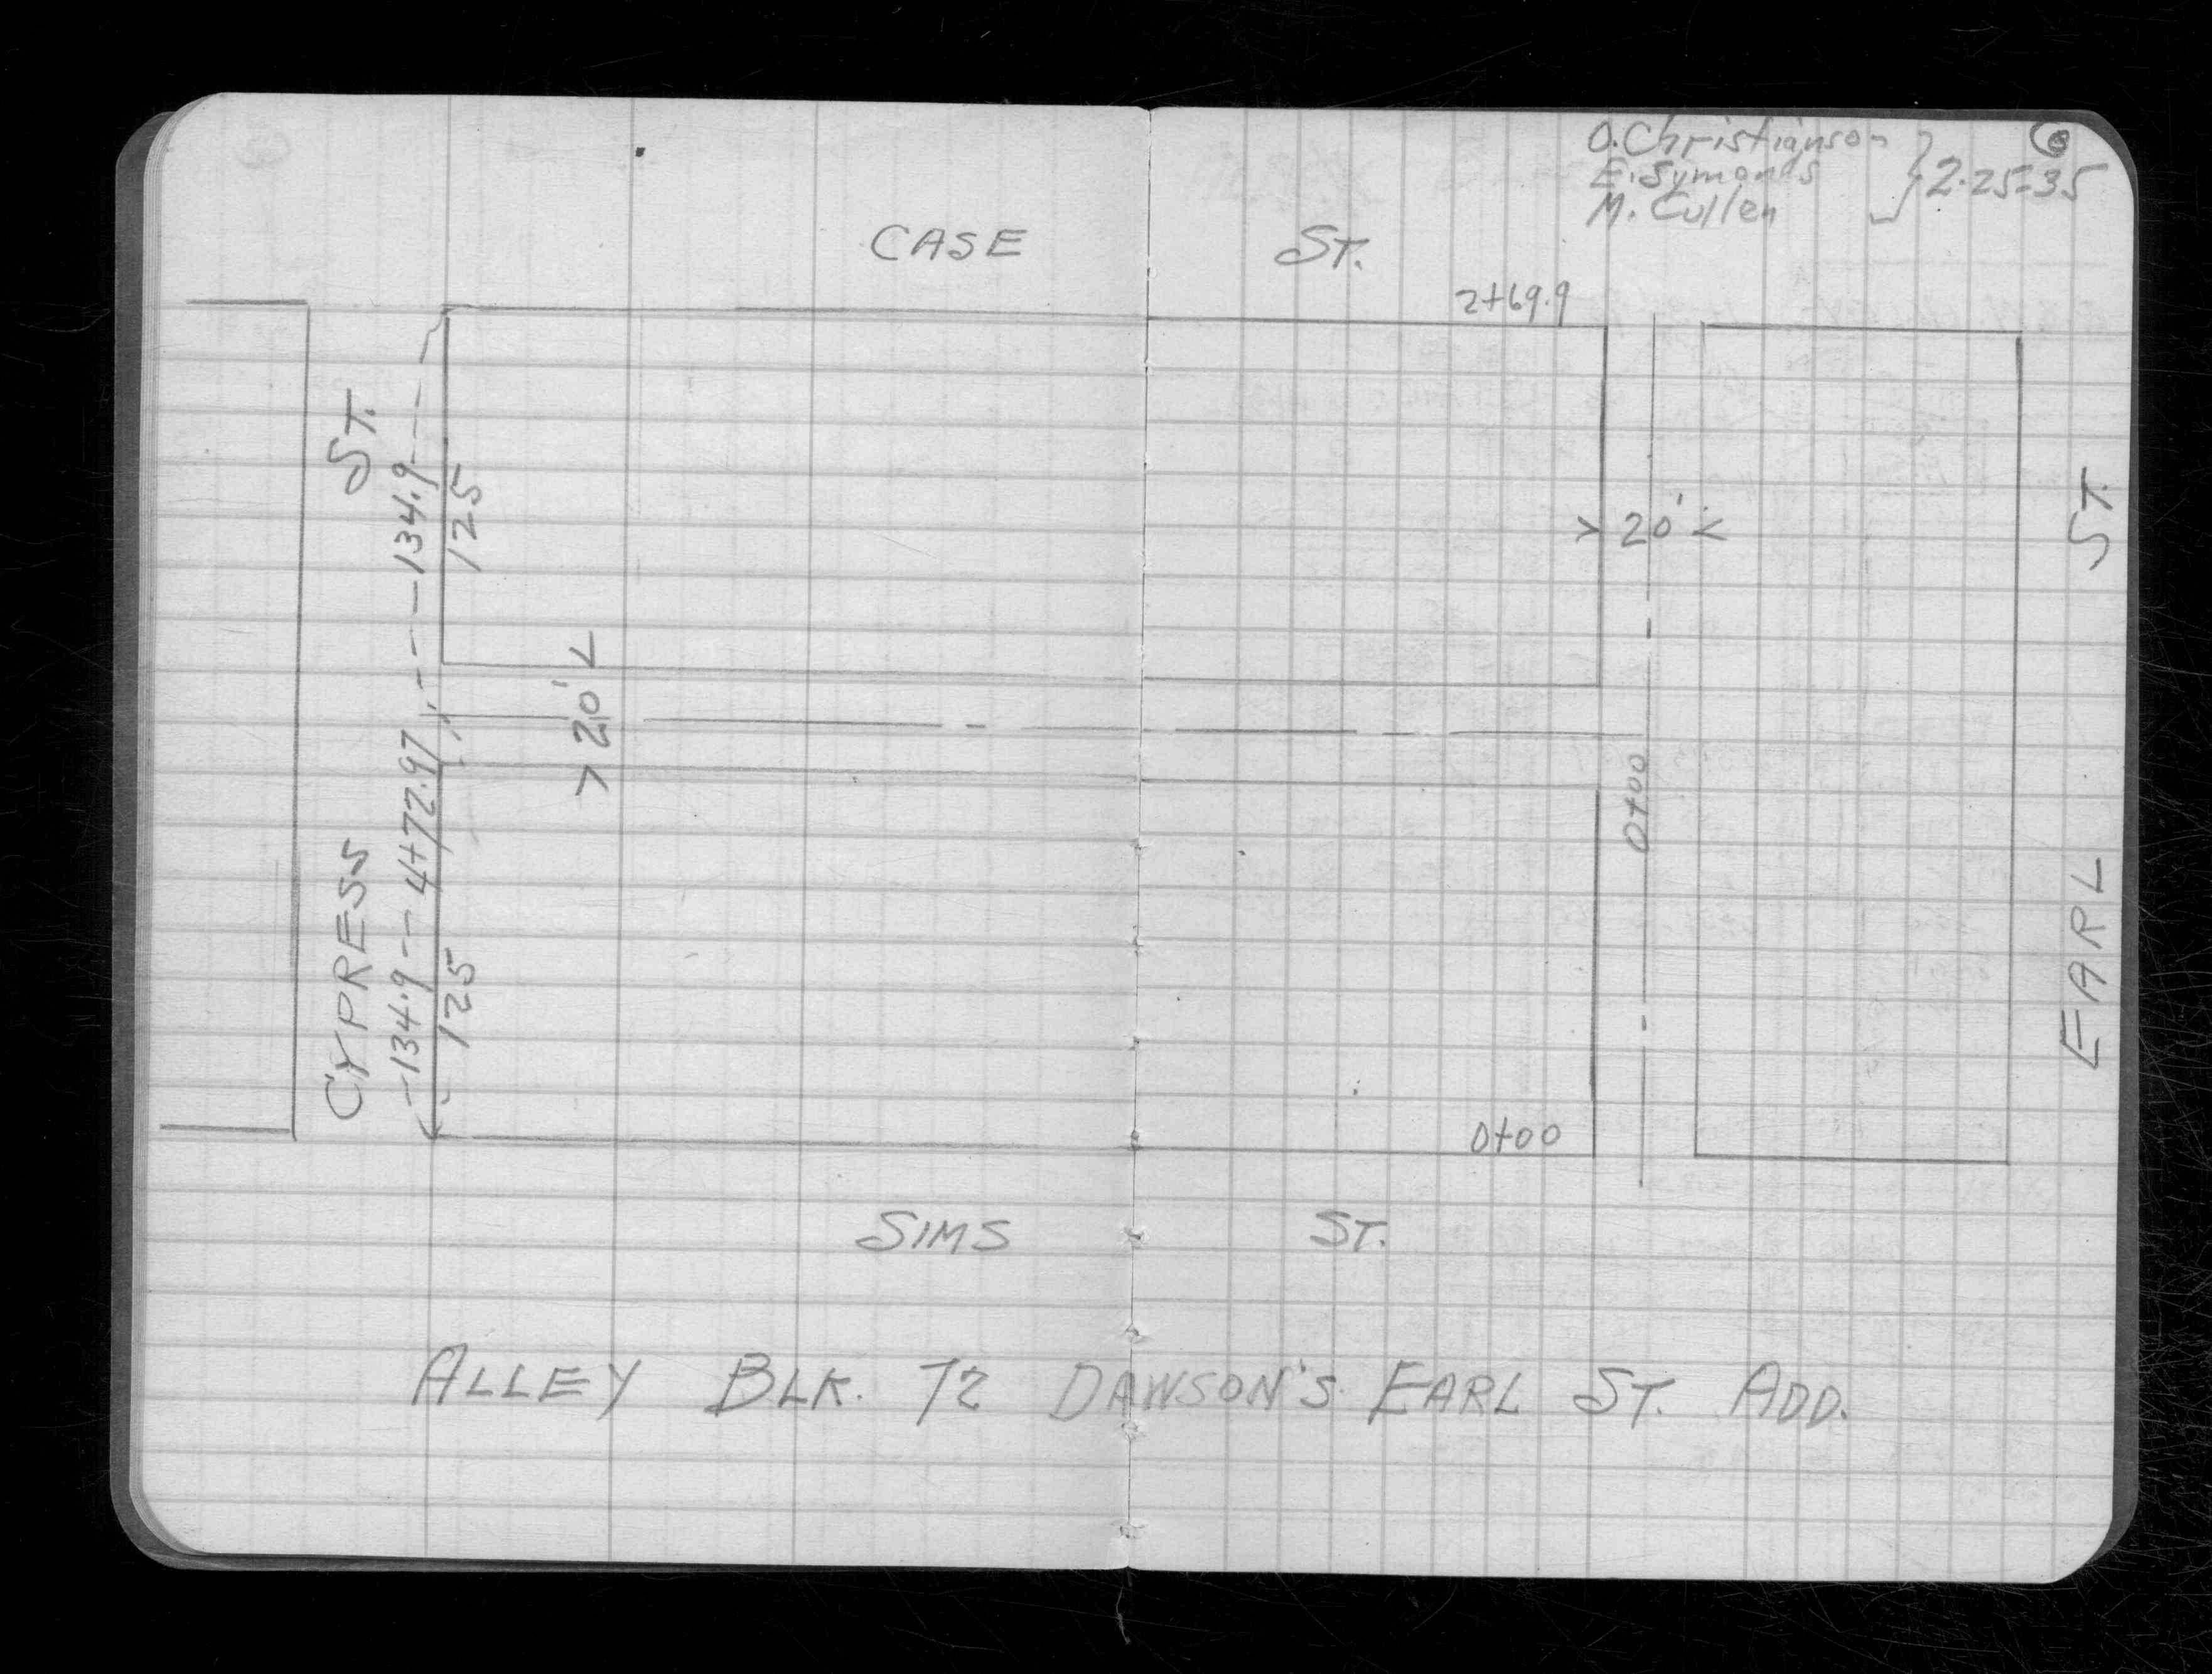 6
O. Christianson
E. Symonds
M. Cullen
2-25-35
CASE ST.
2+69.9
CYPRESS ST.
134.9
125
20'
4+72.97
134.9
125
20'
0+00
0+00
EARL ST.
SIMS ST.
ALLEY BLK. 72 DAWSON'S EARL ST. ADD.